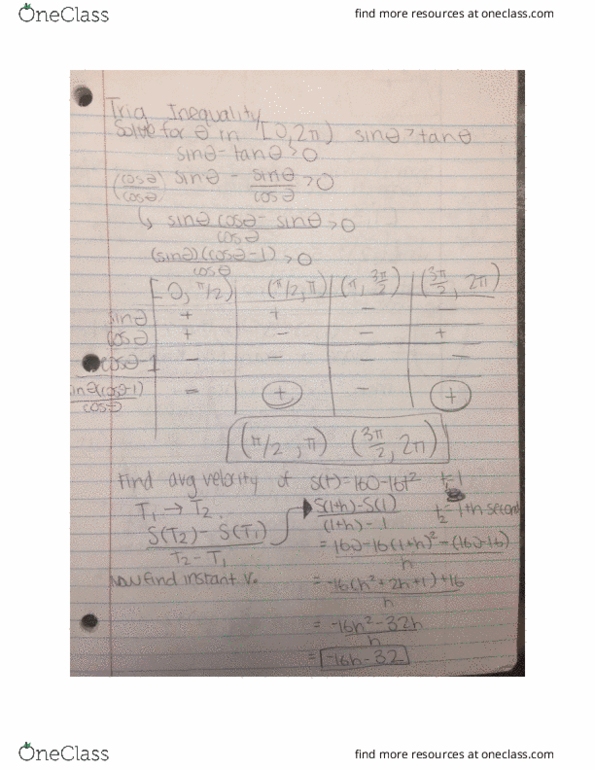 OneClass find more resources at oneclass.com
Trig Inequality
Solve for θ in [0,2π) sinθ>tanθ
sinθ-tanθ>0
(cosθ/cosθ) sinθ - sinθ/cosθ >0
↳ sinθ cosθ - sinθ / cosθ >0
(sinθ)(cosθ-1) / cosθ >0
[0, π/2) (π/2, π) (π, 3π/2) (3π/2, 2π)
sinθ + + - -
cosθ + - - +
cosθ-1 - - - -
sinθ(cosθ-1)/cosθ - + - +
(π/2, π) (3π/2, 2π)
Find avg velocity of s(t)=160-16t² t₁=1
T₁ → T₂ S(1+h)-S(1) / (1+h)-1 t₂=1+h second
S(T₂) - S(T₁) / T₂-T₁ = 160-16(1+h)²-(160-16) / h
Now find instant V. = -16(h²+2h+1)+16 / h
= -16h²-32h / h
= -16h-32
OneClass find more resources at oneclass.com